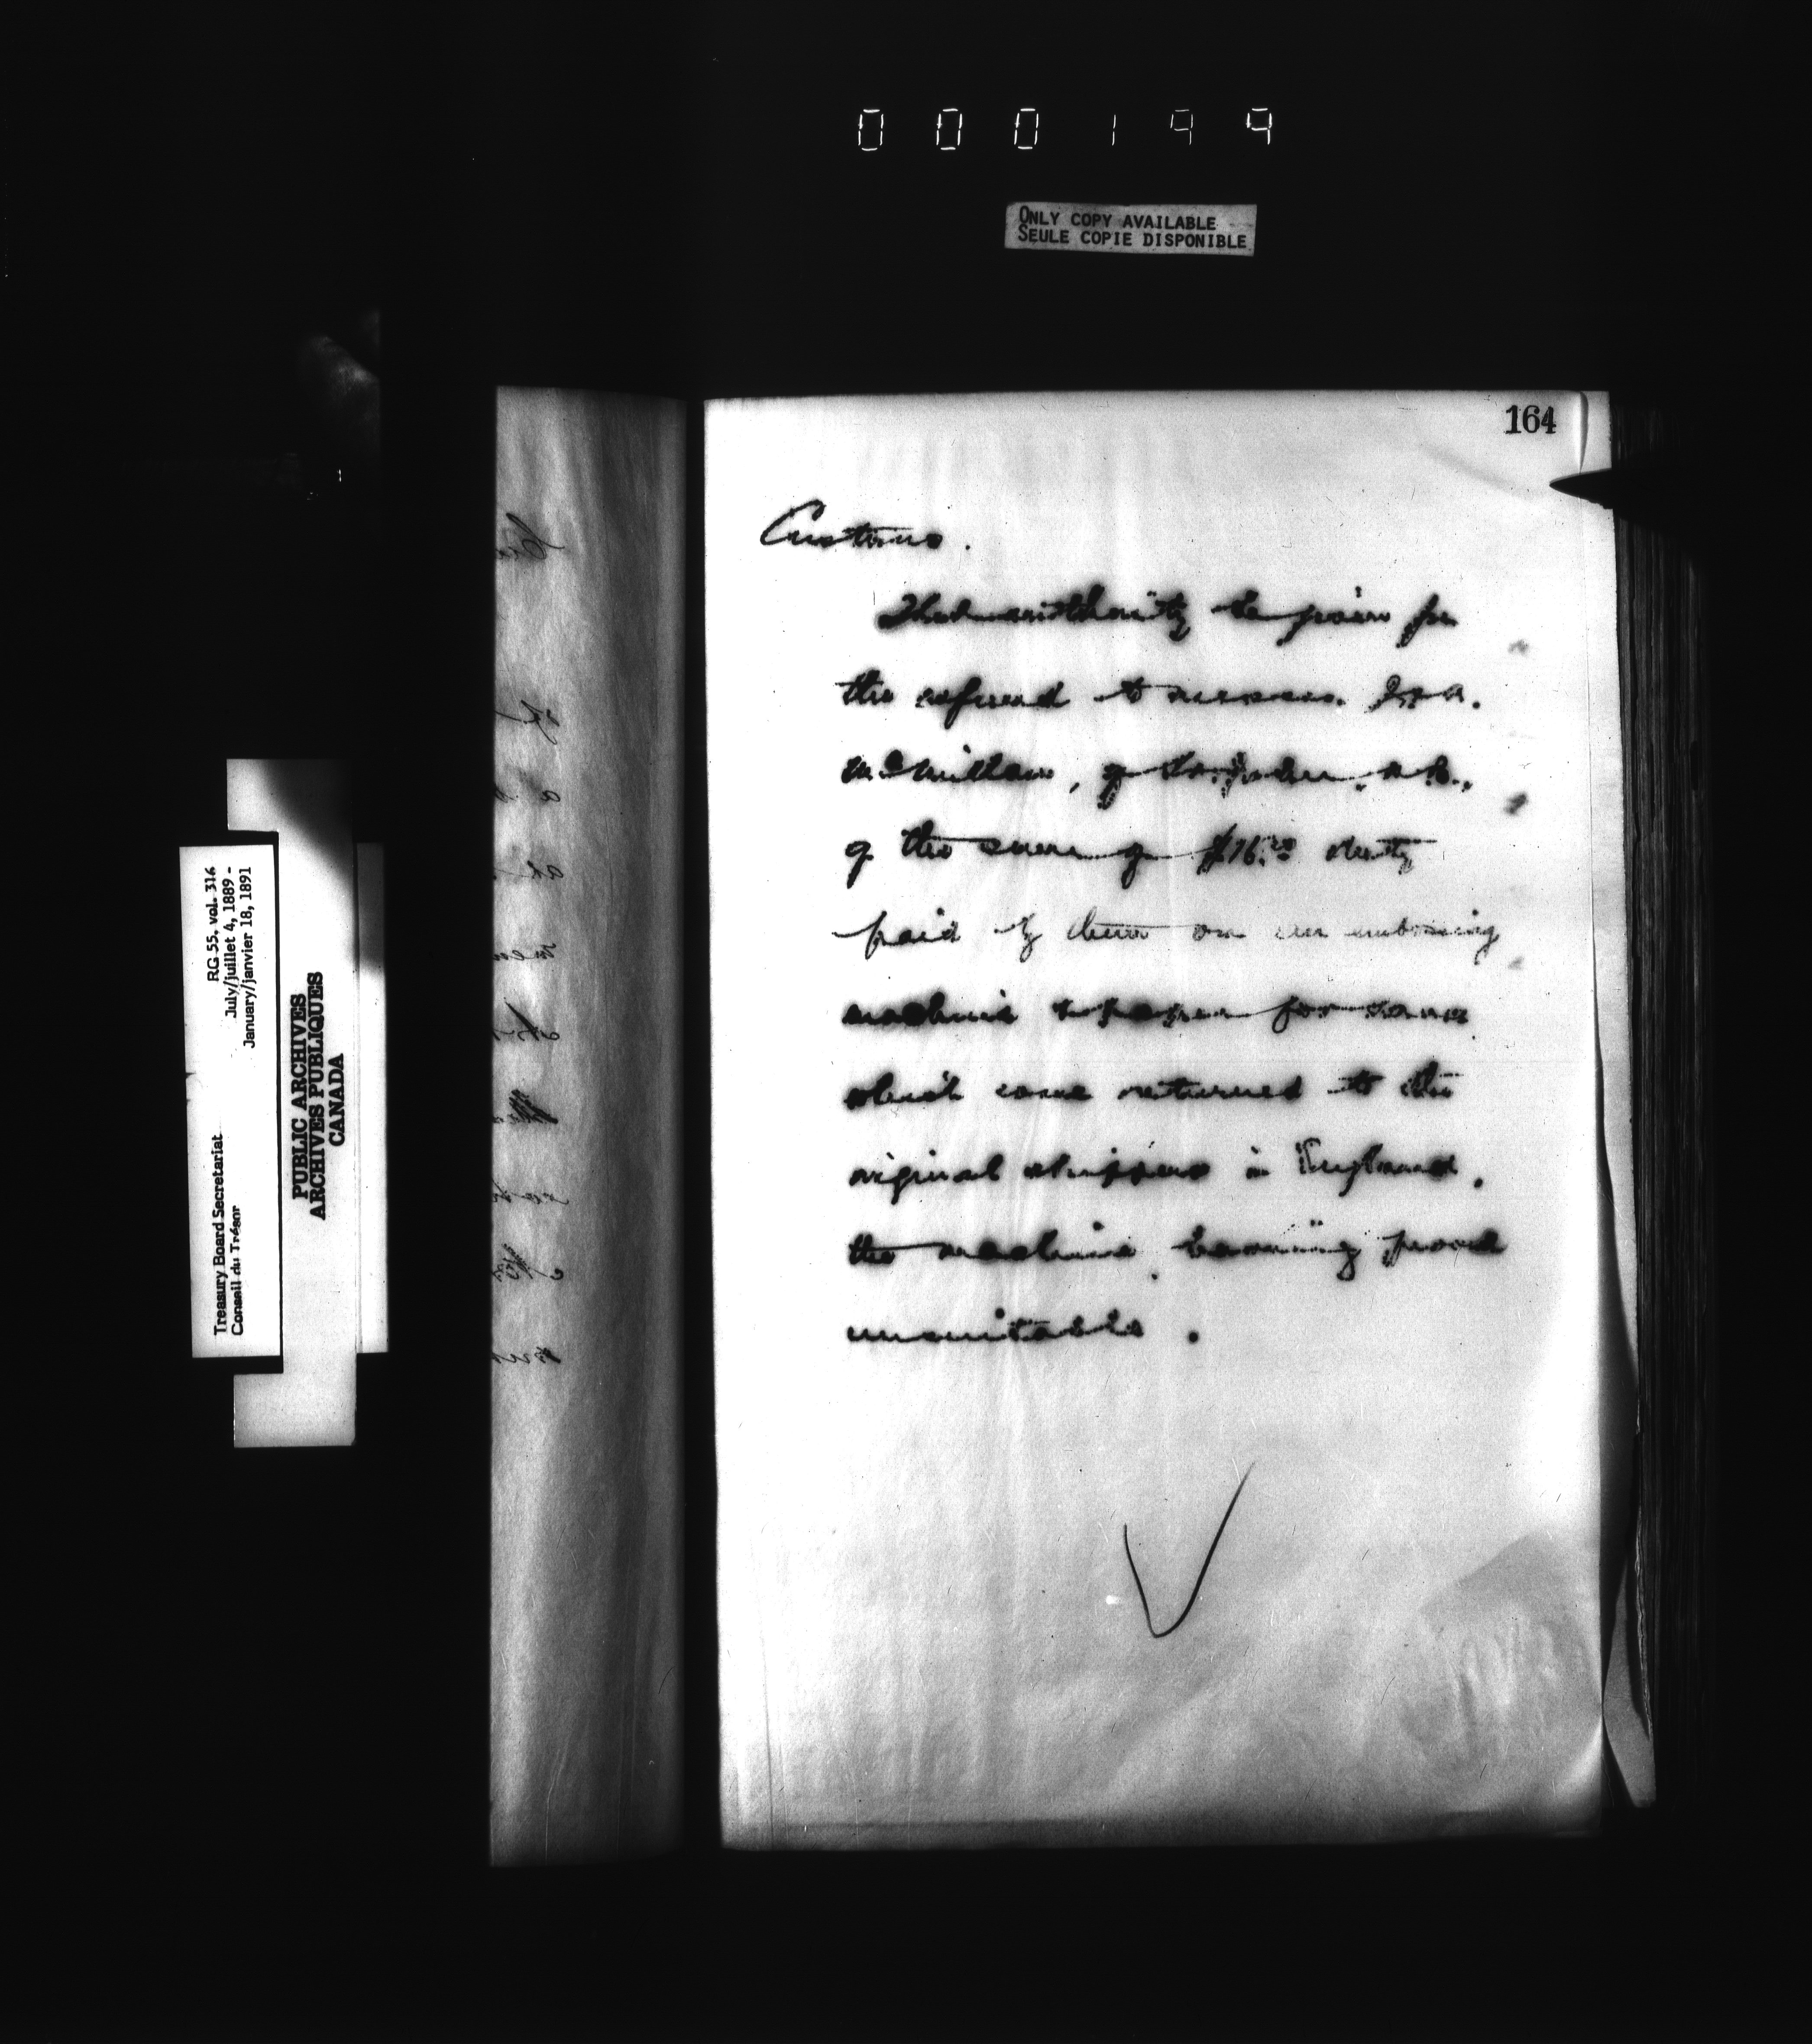 000199
ONLY COPY AVAILABLE
SEULE COPIE DISPONIBLE
164
Customs.
That authority be given for
the refund to Messrs. J & A.
McMillan, of St. John N.B.,
of the sum of duty
paid by them on an embossing
machine paper for same
which were returned to the
original shippers in England,
the machine having proved
unsuitable.
RG 55, vol. 316
July/juillet 4, 1889 -
January/janvier 18, 1891
Treasury Board Secretariat
Conseil du Trésor
PUBLIC ARCHIVES
ARCHIVES PUBLIQUES
CANADA